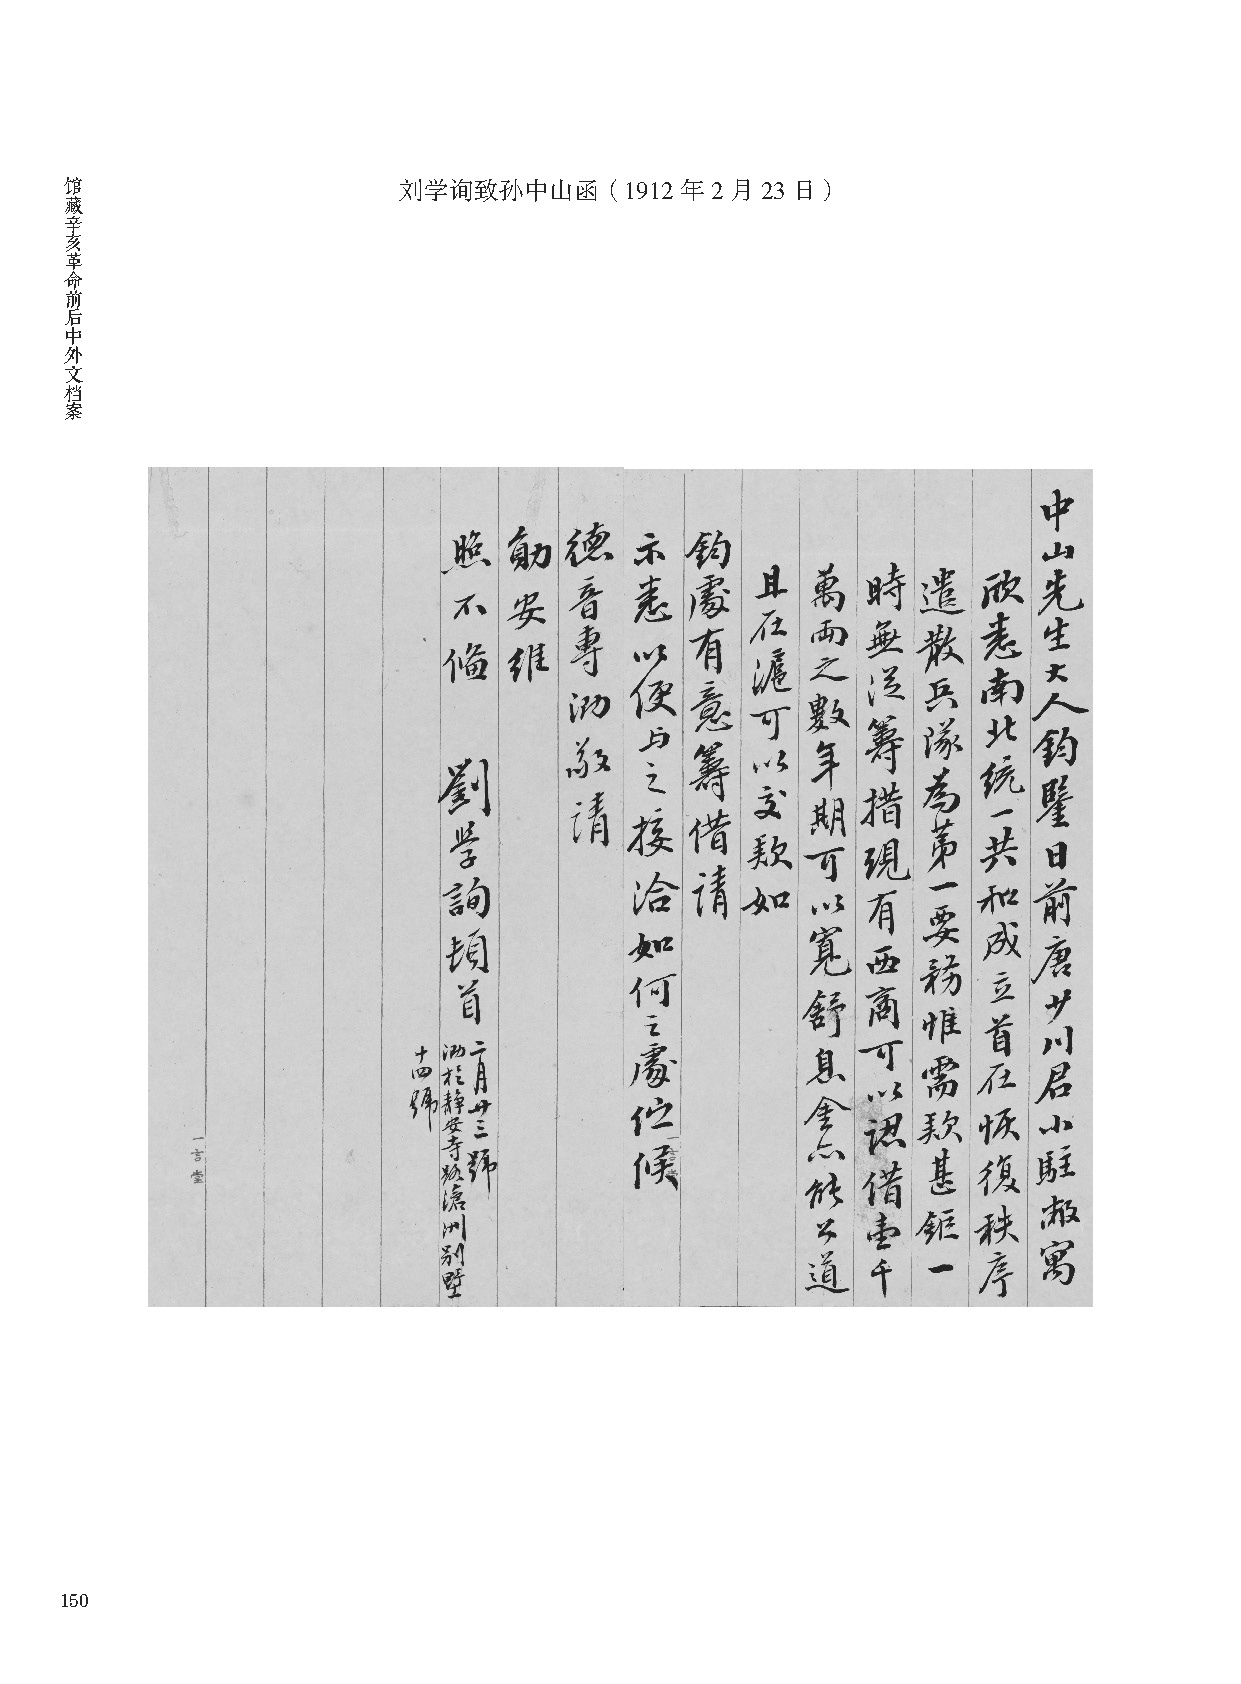 刘学询致孙中山函（1912年2月23日）
馆藏辛亥革命前后中外文档案
中山先生大人鈞鑒日前唐少川君小駐敝寓
欣悉南北統一共和成立首在恢復秩序
遣散兵隊為第一要務惟需款甚鉅一
時無從籌措現有西商可以認借壹千
萬兩之數年期可以寬舒息金亦能公道
且在滬可以交款如
鈞處有意籌借請
示悉以便与之接洽如何之處佇候
德音專泐敬請
勛安維
照不備 劉学詢頓首 二月廿三號
泐於静安寺路滄洲别墅
十四號
一言堂
一言堂
150